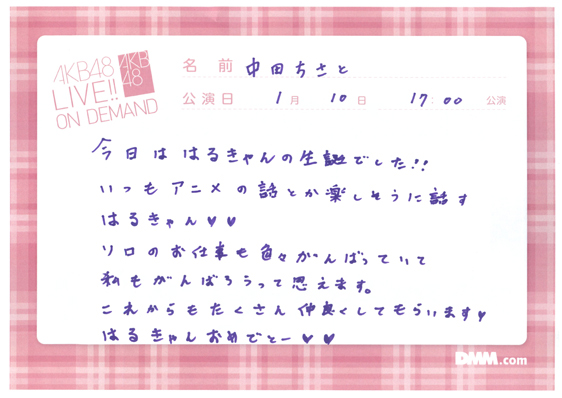 AKB48
LIVE!!
ON DEMAND
AKB
48
名前 中田ちさと
公演日 1月 10日 17:00 公演
今日は はるきゃんの生誕でした!!
いつもアニメの話とか楽しそうに話す
はるきゃん♥♥
ソロのお仕事も色々がんばっていて
私もがんばろうって思えます。
これからもたくさん仲良くしてもらいます♥
はるきゃんおめでとー♥♥
DMM.com